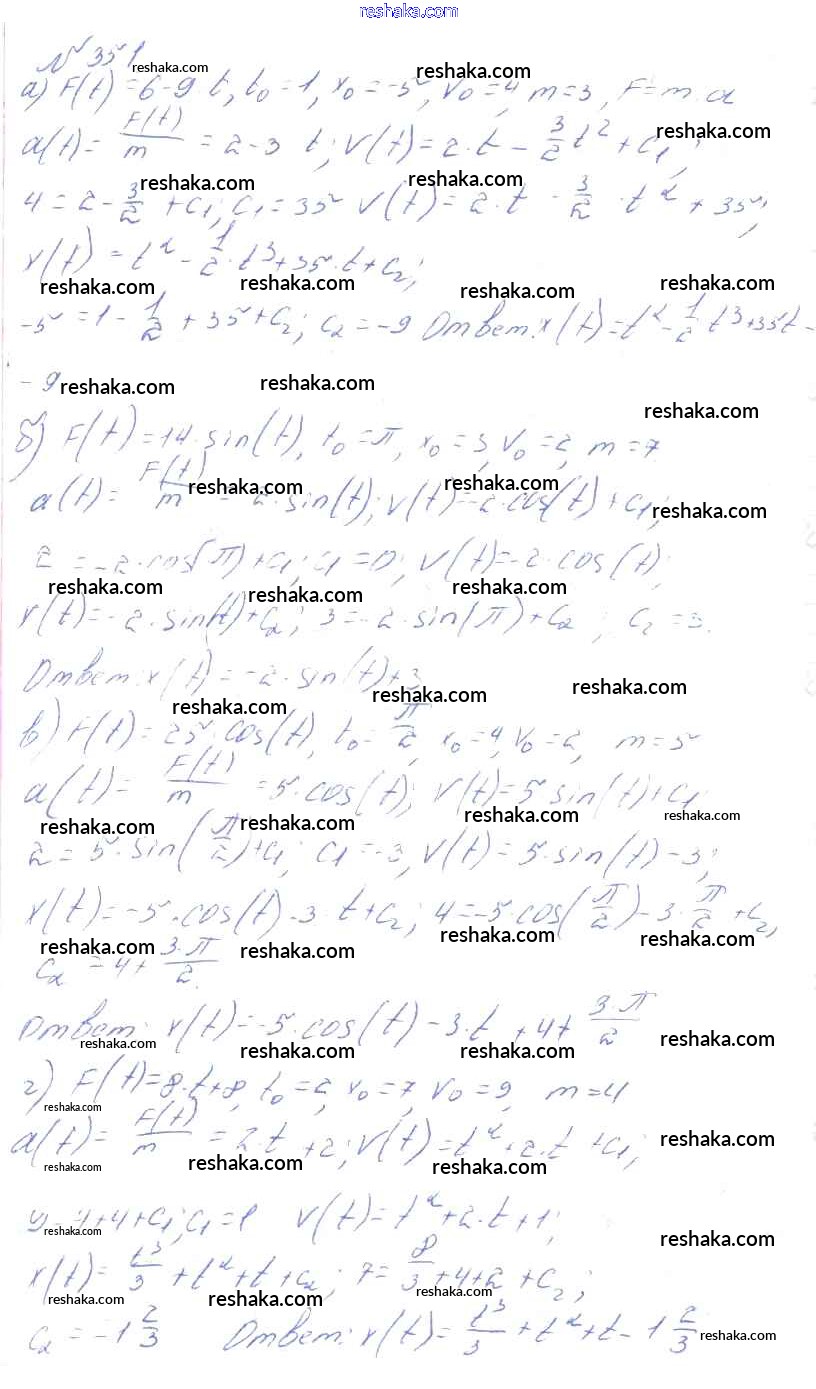 reshaka.com
№ 351
а) F(t) = 6-9·t, t₀ = 1, x₀ = -5, V₀ = 4, m = 3, F = m·a
a(t) = F(t)/m = 2-3 t; V(t) = 2·t - 3/2 t² + C₁;
4 = 2 - 3/2 + C₁; C₁ = 3,5 V(t) = 2·t - 3/2·t² + 3,5;
x(t) = t² - 1/2·t³ + 3,5·t + C₂;
-5 = 1 - 1/2 + 3,5 + C₂; C₂ = -9 Ответ: x(t) = t² - 1/2 t³ + 3,5t -
- 9
б) F(t) = 14·sin(t), t₀ = π, x₀ = 3, V₀ = 2, m = 7
a(t) = F(t)/m = 2·sin(t); V(t) = -2·cos(t) + C₁;
2 = -2·cos(π) + C₁; C₁ = 0; V(t) = -2·cos(t);
x(t) = -2·sin(t) + C₂; 3 = -2·sin(π) + C₂; C₂ = 3.
Ответ: x(t) = -2·sin(t) + 3
в) F(t) = 25·cos(t), t₀ = π/2, x₀ = 4, V₀ = 2, m = 5
a(t) = F(t)/m = 5·cos(t); V(t) = 5 sin(t) + C₁
2 = 5·sin(π/2) + C₁; C₁ = -3, V(t) = 5·sin(t) - 3;
x(t) = -5·cos(t) - 3·t + C₂; 4 = -5·cos(π/2) - 3·π/2 + C₂;
C₂ = 4 + 3·π/2.
Ответ: x(t) = -5·cos(t) - 3·t + 4 + 3·π/2
г) F(t) = 8·t + 8, t₀ = 2, x₀ = 7, V₀ = 9, m = 4
a(t) = F(t)/m = 2·t + 2; V(t) = t² + 2·t + C₁;
9 = 4 + 4 + C₁; C₁ = 1 V(t) = t² + 2·t + 1;
x(t) = t³/3 + t² + t + C₂; 7 = 8/3 + 4 + 2 + C₂;
C₂ = -1 2/3 Ответ: x(t) = t³/3 + t² + t - 1 2/3